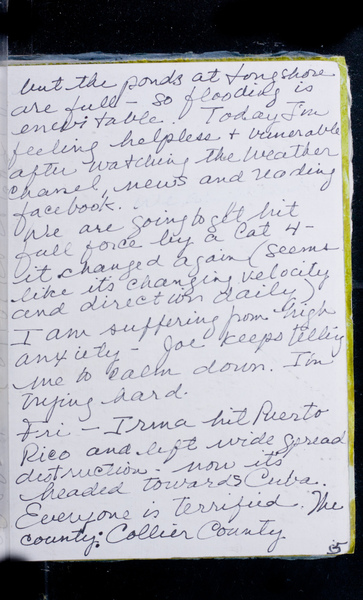 but the ponds at Longshore
are full - so flooding is
enevitable. Today I'm
feeling helpless + vunerable
after watching the weather
chanel, news and reading
facebook..
We are going to get hit
full force by a Cat 4 -
it changed again (seems
like its changing velocity
and direction daily)
I am suffering from high
anxiety - Joe keeps telling
me to calm down. I'm
trying hard.
Fri - Irma hit Puerto
Rico and left wide spread
distruction - now its
headed towards Cuba.
Everyone is terrified. The
county: Collier County
5